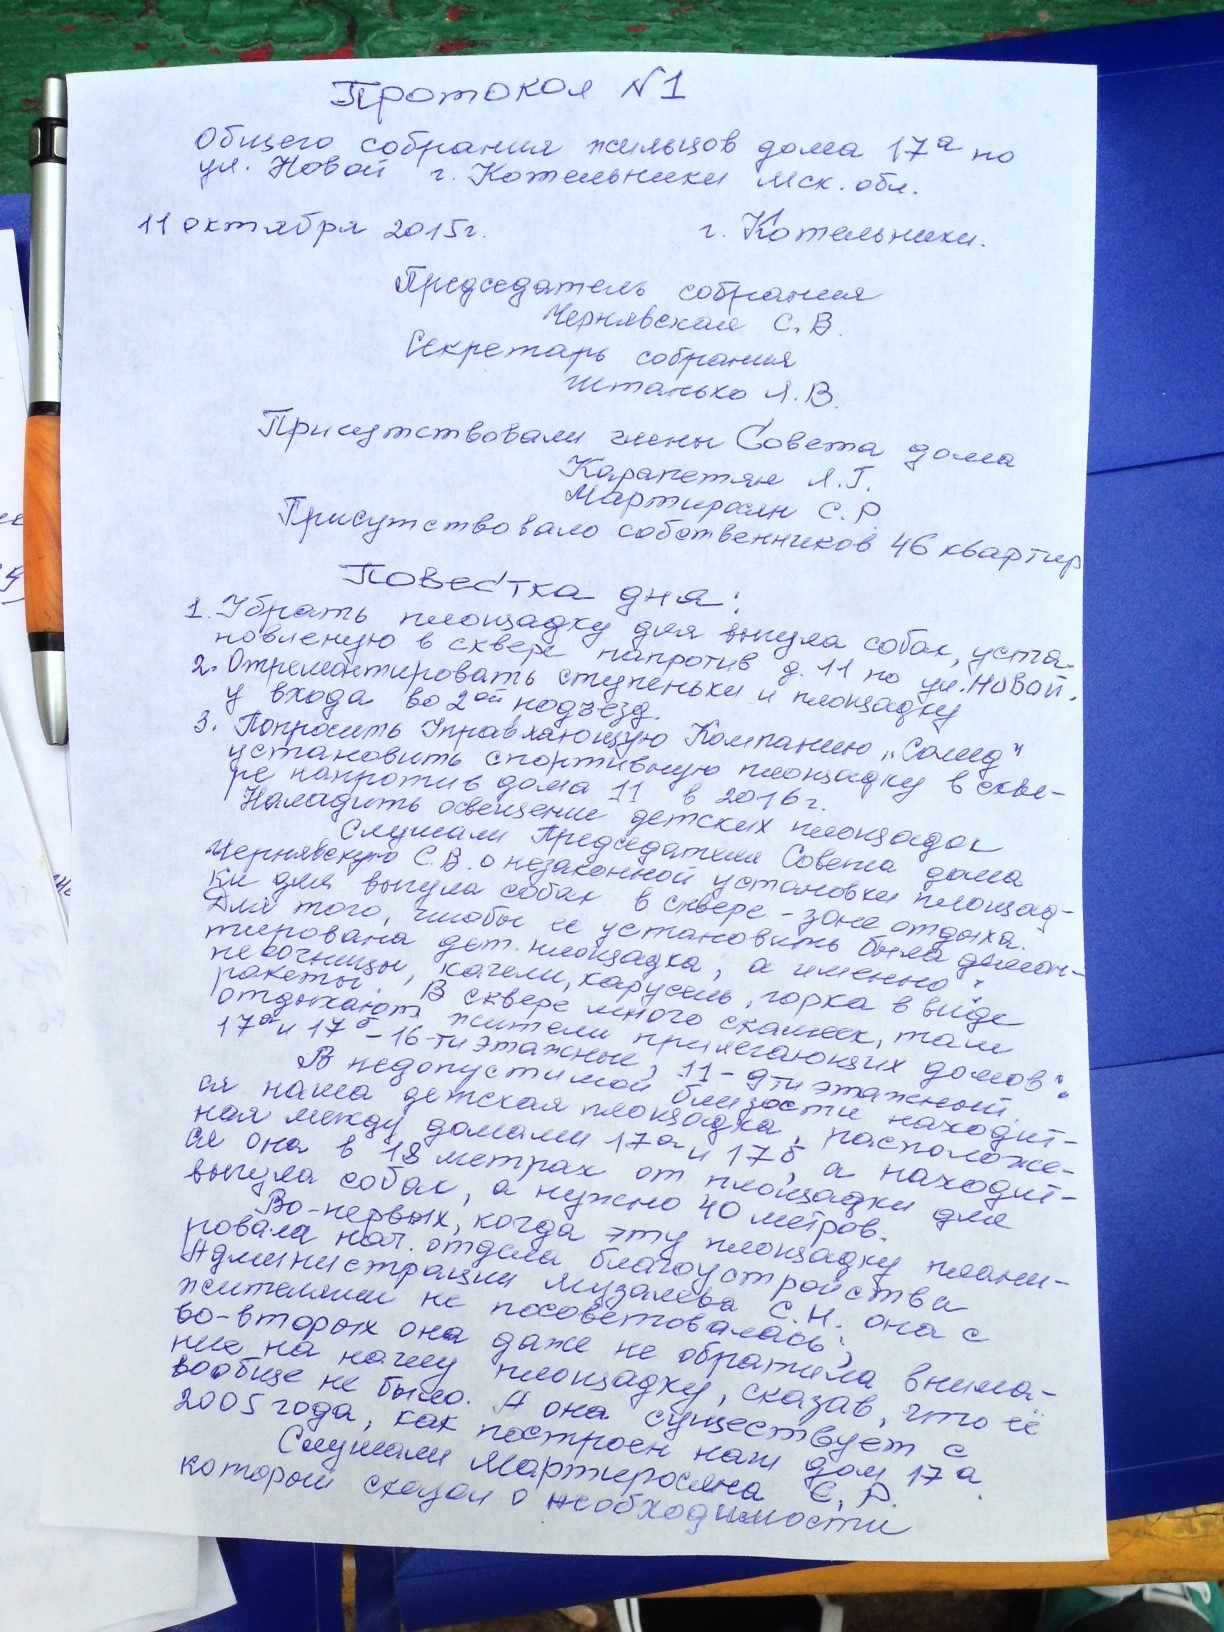 Протокол N1
Общего собрания жильцов дома 17а по
ул. Новой г. Котельники Мск. обл.
11 октября 2015г. г. Котельники.
Председатель собрания
Чернявская С. В.
Секретарь собрания
Штанько Л. В.
Присутствовали члены Совета дома
Карапетян Л. Г.
Мартиросян С. Р.
Присутствовало собственников 46 квартир
Повестка дня:
1. Убрать площадку для выгула собак, уста-
новленую в сквере напротив д. 11 по ул. Новой.
2. Отремонтировать ступеньки и площадку
у входа во 2ой подъезд.
3. Попросить Управляющую Компанию „Солид"
установить спортивную площадку в скве-
ре напротив дома 11 в 2016 г.
Наладить освещение детских площадок
Слушали Председателя Совета дома
Чернявскую С. В. о незаконной установки площад-
ки для выгула собак в сквере - зоне отдыха.
Для того, чтобы её установить была демон-
тирована дет. площадка, а именно:
песочницы, качели, карусель, горка в виде
ракеты. В сквере много скамеек, там
отдыхают жители прилегающих домов:
17а и 17б - 16-ти этажные, 11 - 9ти этажный.
В недопустимой близости находит-
ся наша детская площадка, расположе-
ная между домами 17а и 17б, а находит-
ся она в 18 метрах от площадки для
выгула собак, а нужно 40 метров.
Во-первых, когда эту площадку плани-
ровала нач. отдела благоустройства
Администрации Музалева С. Н. она с
жителями не посоветовалась;
во-вторых она даже не обратила внима-
ние на нашу площадку, сказав, что её
вообще не было. А она существует с
2005 года, как построен наш дом 17а.
Слушали Мартиросяна С. Р.
который сказал о необходимости